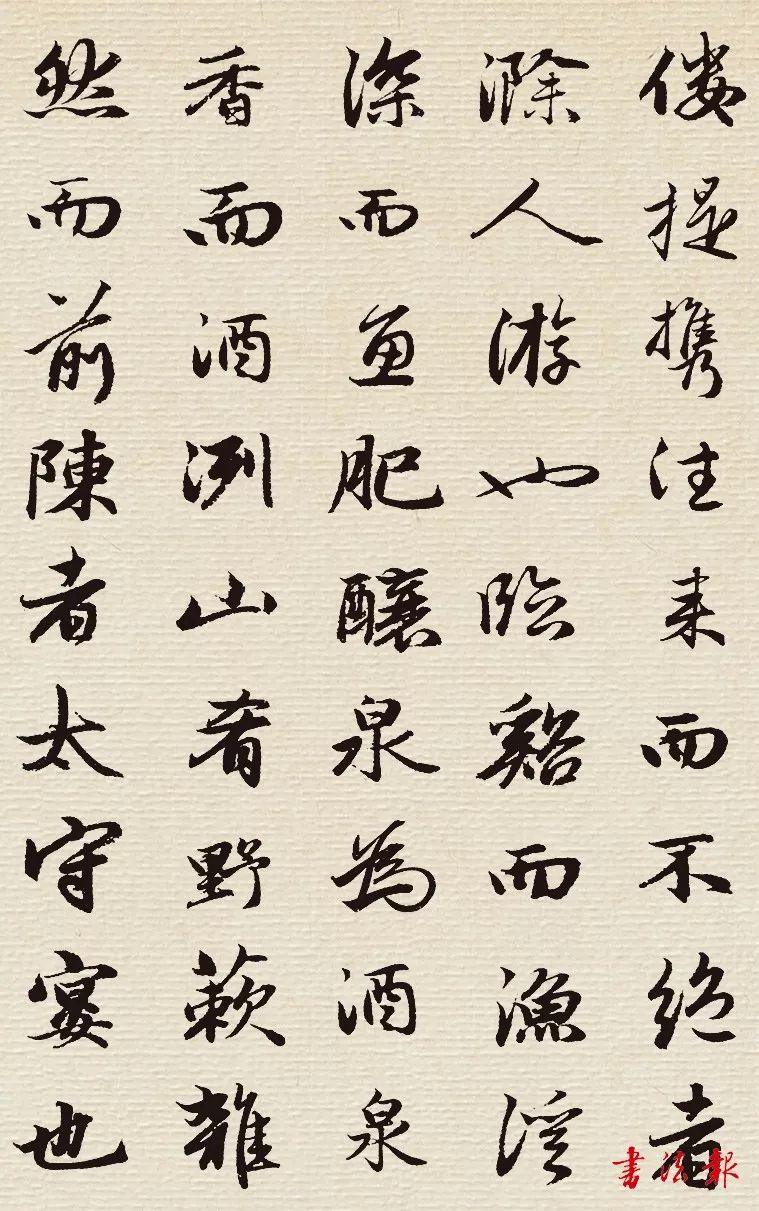 傴提携往来而不絶者
滁人游也臨谿而漁溪
深而魚肥釀泉為酒泉
香而酒洌山肴野蔌雜
然而前陳者太守宴也
書法報